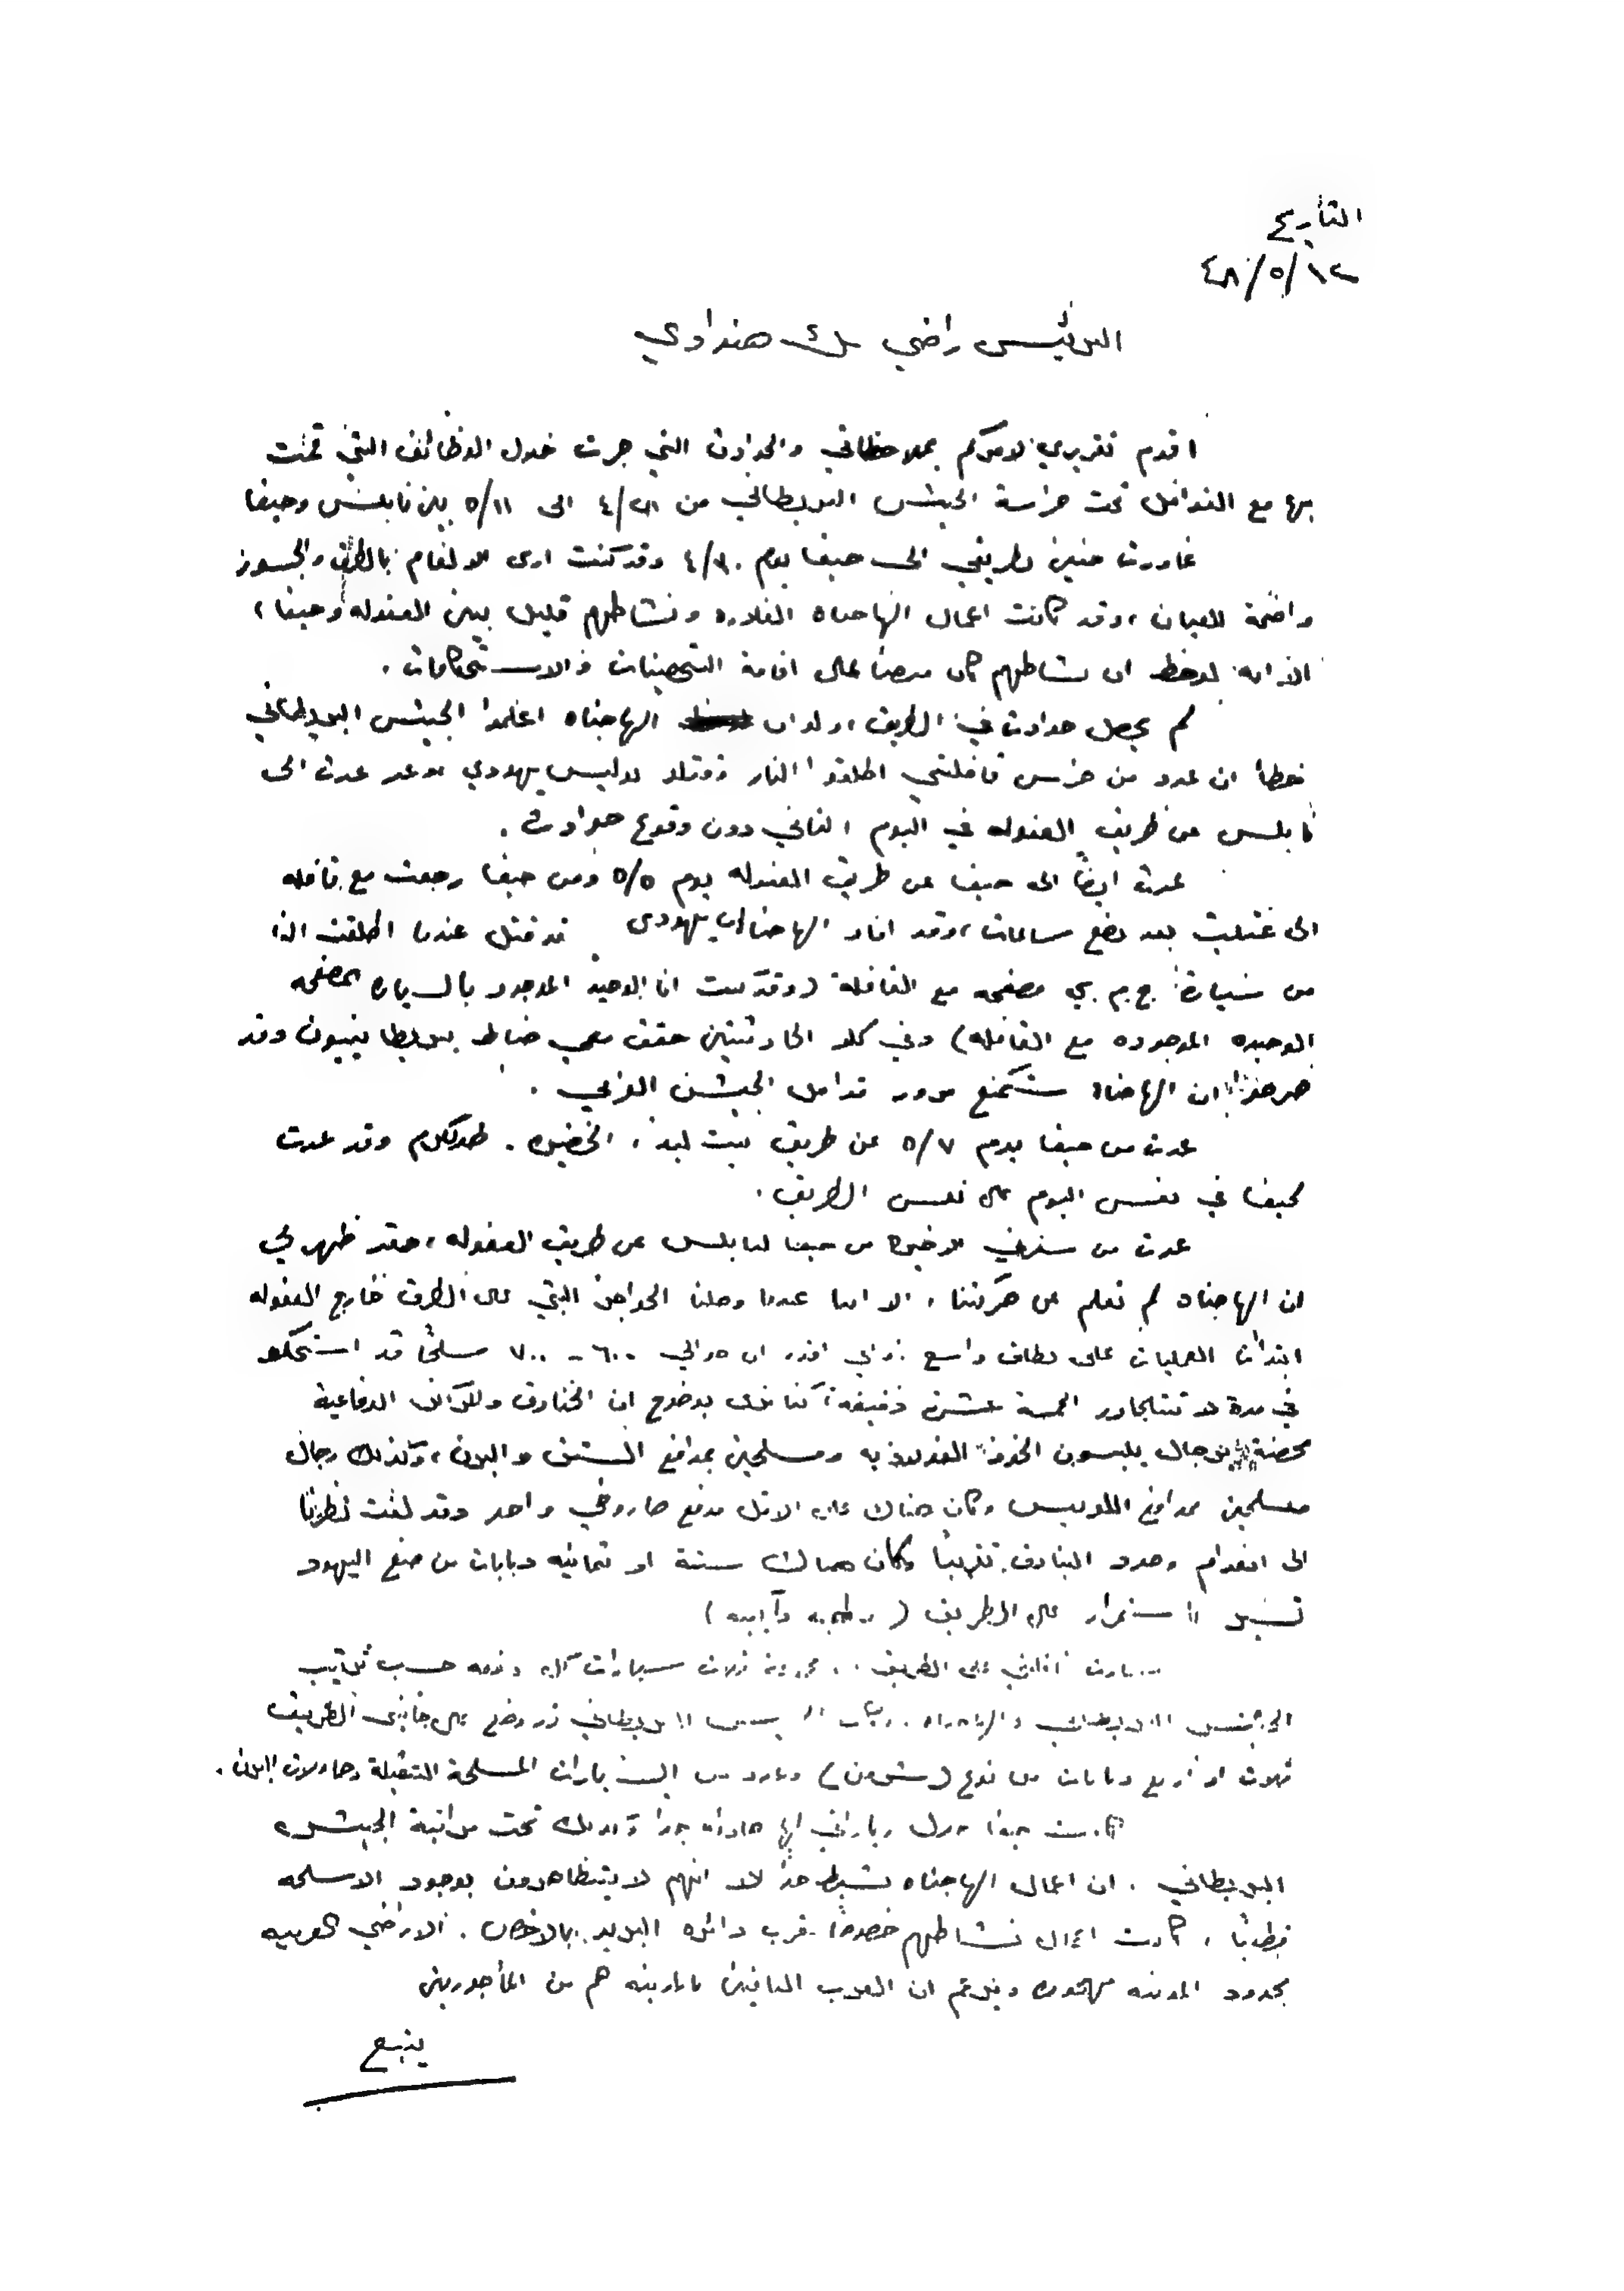 التأريخ
٤٨/٥/١٢
الرئيس راضي بك هنداوي
اقدم تقريري لامركم بملاحظاتي والحوادث التي جرت خلال الوظائف التي قمت
بها مع القوافل تحت حراسة الجيش البريطاني من ٤/٢٨ الى ٥/١١ بين نابلس وحيفا
غادرت جنين بطريقي الى حيفا يوم ٤/٣٠ وقد كنت ارى الالغام بالطرق والجسور
واضحة للعيان، وقد كانت اعمال الهاجناه الغادره ونشاطهم قليل بين العفوله وحيفا،
الا انه لوحظ ان نشاطهم كان على اقامة التحصينات والاستحكامات.
لم يحصل حوادث في الطريق، ولو ان الهاجناه اعلموا الجيش البريطاني
خطأ ان عدد من حرس قافلتي اطلقوا النار وقتلو بوليس يهودي وقد عدت الى
نابلس عن طريق العفوله في اليوم الثاني دون وقوع حوادث.
عدت ايضاً الى حيفا عن طريق العفوله يوم ٥/٥ ومن حيفا رجعت مع قافله
الى عتليت بعد بضع ساعات، وقد افاد الهاجناه ان يهودي قد قتل عندما اطلقت النار
من سيارة ج.م.سي مصفحه مع القافلة (وقد كنت انا الوحيد الموجود بالسياره المصفحه
الوحيده الموجوده مع القافله) وفي كلا الحادثتين حقق معي ضباط بريطانييون وقد
صرحوا ان الهاجناه ستمنع مرور قوافل الجيش العربي.
عدت من حيفا يوم ٥/٧ عن طريق بيت ليد، الخضيره. طولكرم وقد عدت
لحيفا في نفس اليوم على نفس الطريق.
عدت من سفرتي الاخيره من حيفا لنابلس عن طريق العفوله، فقد ظهر لي
ان الهاجناه لم تعلم عن حركتنا، الا اننا عندما وصلنا الحواجز التي على الطرق خارج العفوله
ابتدأت العمليات على نطاق واسع واني اقدر ان حوالي ٦٠٠ - ٧٠٠ مسلحاً قد استحكمو
في مدة لا تتتجاوز الخمسة عشرة دقيقة، كنا نرى بوضوح ان الخنادق والمراكز الدفاعية
محصنة برجال يلبسون الخوذ الفولاذيه ومسلحين بمدافع الستن والبرن، وكذلك رجال
مسلحين بمدافع اللويس وكان هناك على الاقل مدفع صاروخي واحد وقد لفت نظرنا
الى انعدام وجود البنادق تقريباً وكان هناك ستة او ثمانيه دبابات من صنع اليهود
تسير باستمرار على الطريق ( وآيبه )
على الطريق ثلاث سيارات حسب ترتيب
الجيش البريطاني والهاجناه. وكان الجيش البريطاني قد وضع على جانبي الطريق
ثلاث او اربع دبابات من نوع (شرمن) وعدد من السيارات المسلحة الثقيلة وحاملات البرن.
كانت حيفا خلال زياراتي لها هادئه جداً وكذلك تحت مراقبة الجيش
البريطاني. ان اعمال الهاجناه نشيطه جداً الا انهم لا يتظاهرون بوجود الاسلحه
قطعياً، كانت اعمال نشاطهم خصوصاً قرب دائره البريد بالاخص. الاراضي العربيه
بحدود المدينه مهجوره ويزعم ان العرب الباقين بالمدينه هم من المأجورين
يتبع